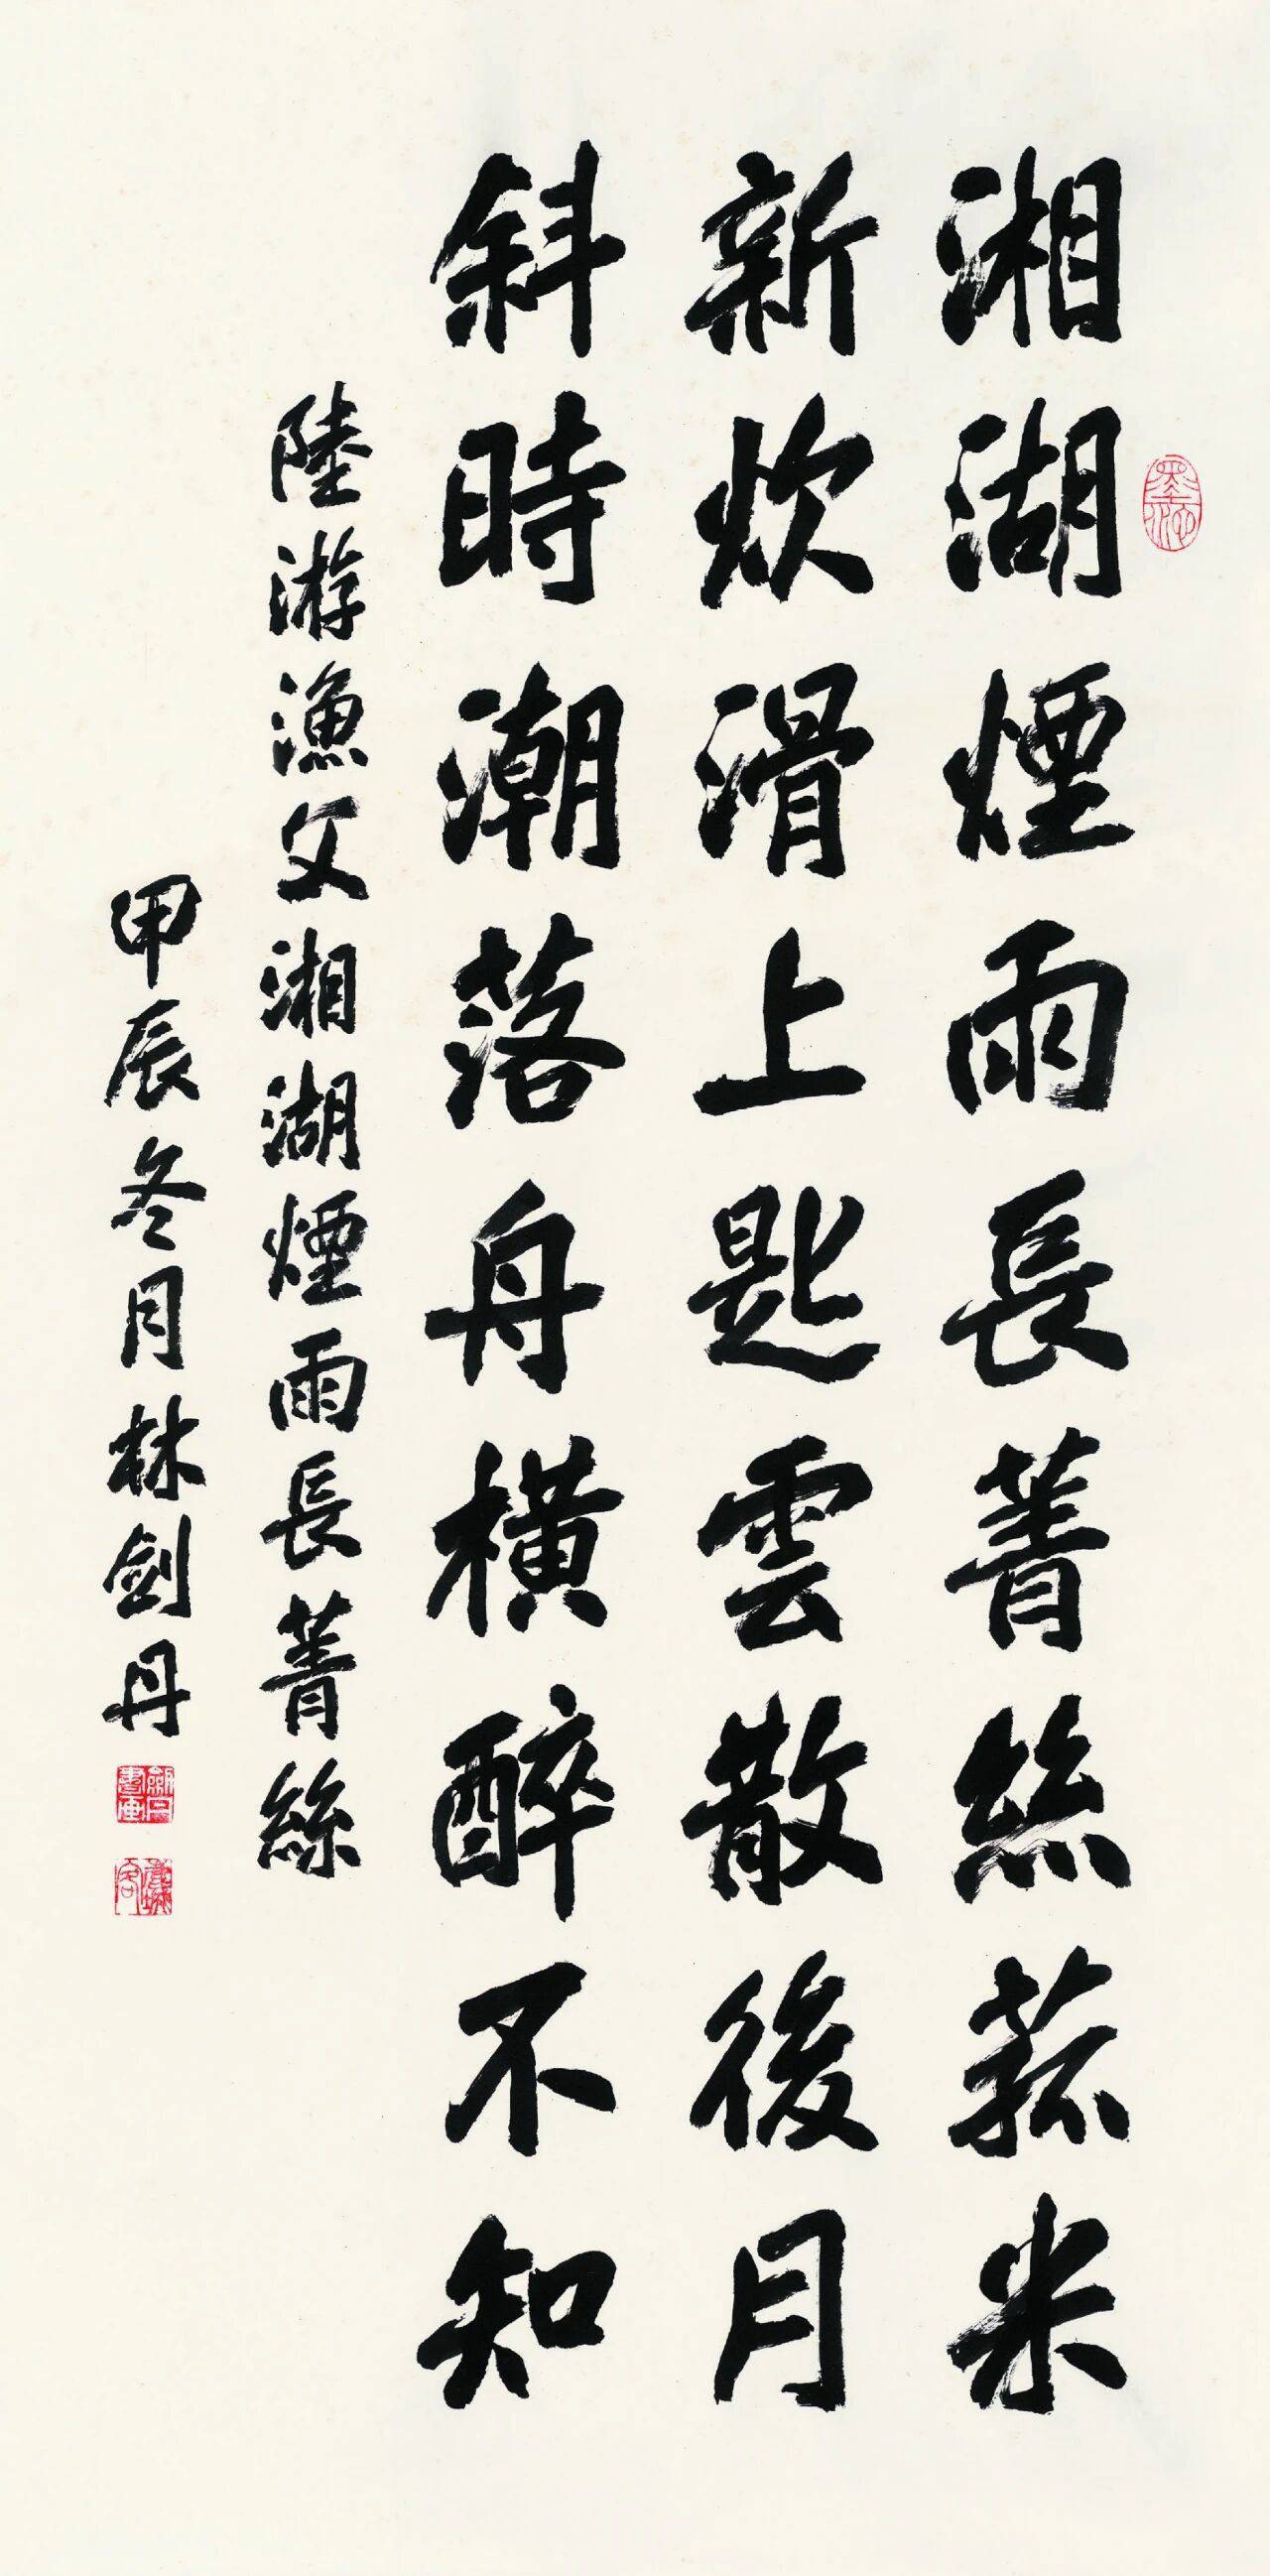 湘湖煙雨長菁絲菰米
新炊滑上匙雲散後月
斜時潮落舟橫醉不知
陸游漁父湘湖煙雨長菁絲
甲辰冬月林劍丹